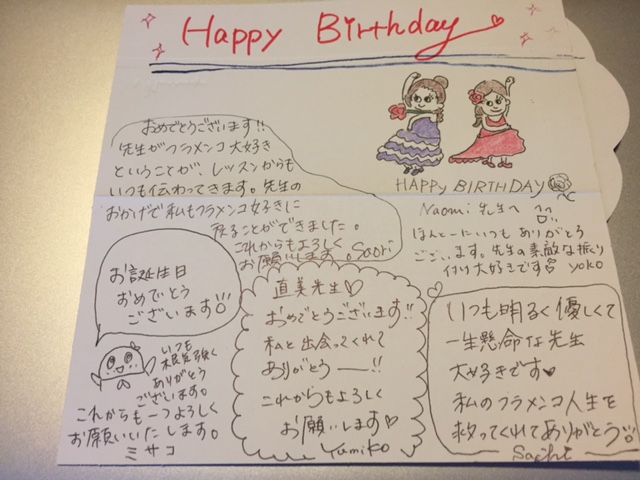 Happy Birthday
おめでとうございます!!
先生がフラメンコ大好き
ということが、レッスンからも
いつも伝わってきます。先生の
おかげで私もフラメンコ好きに
戻ることができました。
これからもよろしく
お願いします。Saori
HAPPY BIRTHDAY
Naomi 先生へ
ほんとーにいつもありがとう
ございます。先生の素敵な振り
付け大好きです
yoko
お誕生日
おめでとう
ございます
いつも
根気強く
ありがとう
ございます。
これからも一つよろしく
お願いいたします。
ミサコ
直美先生♡
おめでとうございます!!
私と出会ってくれて
ありがとうーー!!
これからもよろしく
お願いします♡
Yumiko
いつも明るく優しくて
一生懸命な先生
大好きです♥
私のフラメンコ人生を
救ってくれてありがとう
Sachi